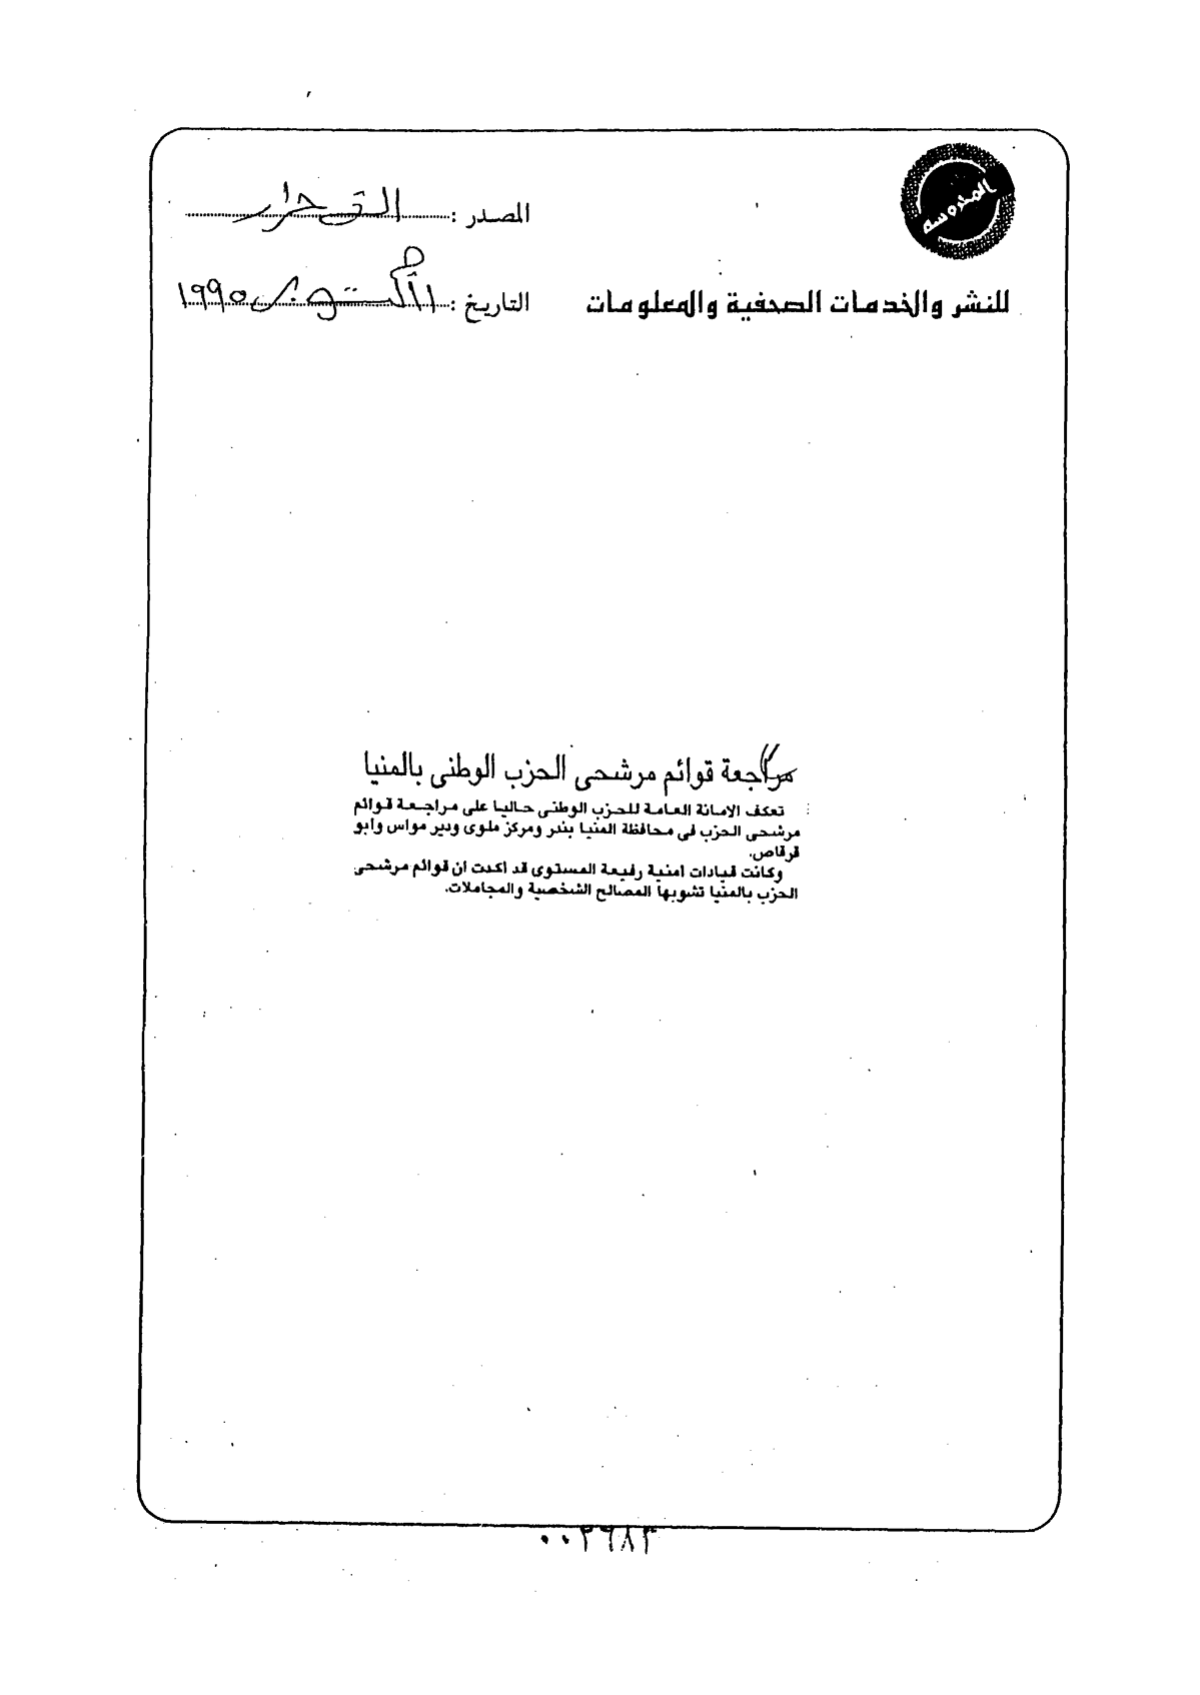 المحروسة
المصدر :
للنشر والخدمات الصحفية والمعلومات
التاريخ : ١١ أكتوبر ١٩٩٥
مراجعة قوائم مرشحى الحزب الوطنى بالمنيا
تعكف الامانة العامة للحزب الوطنى حاليا على مراجعة قوائم
مرشحى الحزب فى محافظة المنيا بندر ومركز ملوى ودير مواس وابو
قرقاص.
وكانت قيادات امنية رفيعة المستوى قد اكدت ان قوائم مرشحى
الحزب بالمنيا تشوبها المصالح الشخصية والمجاملات.
٠٠٢٩٨٣